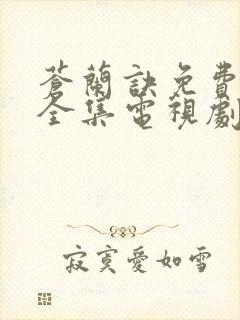 蒼蘭訣免費
全集電視劇
寂寞愛如雪